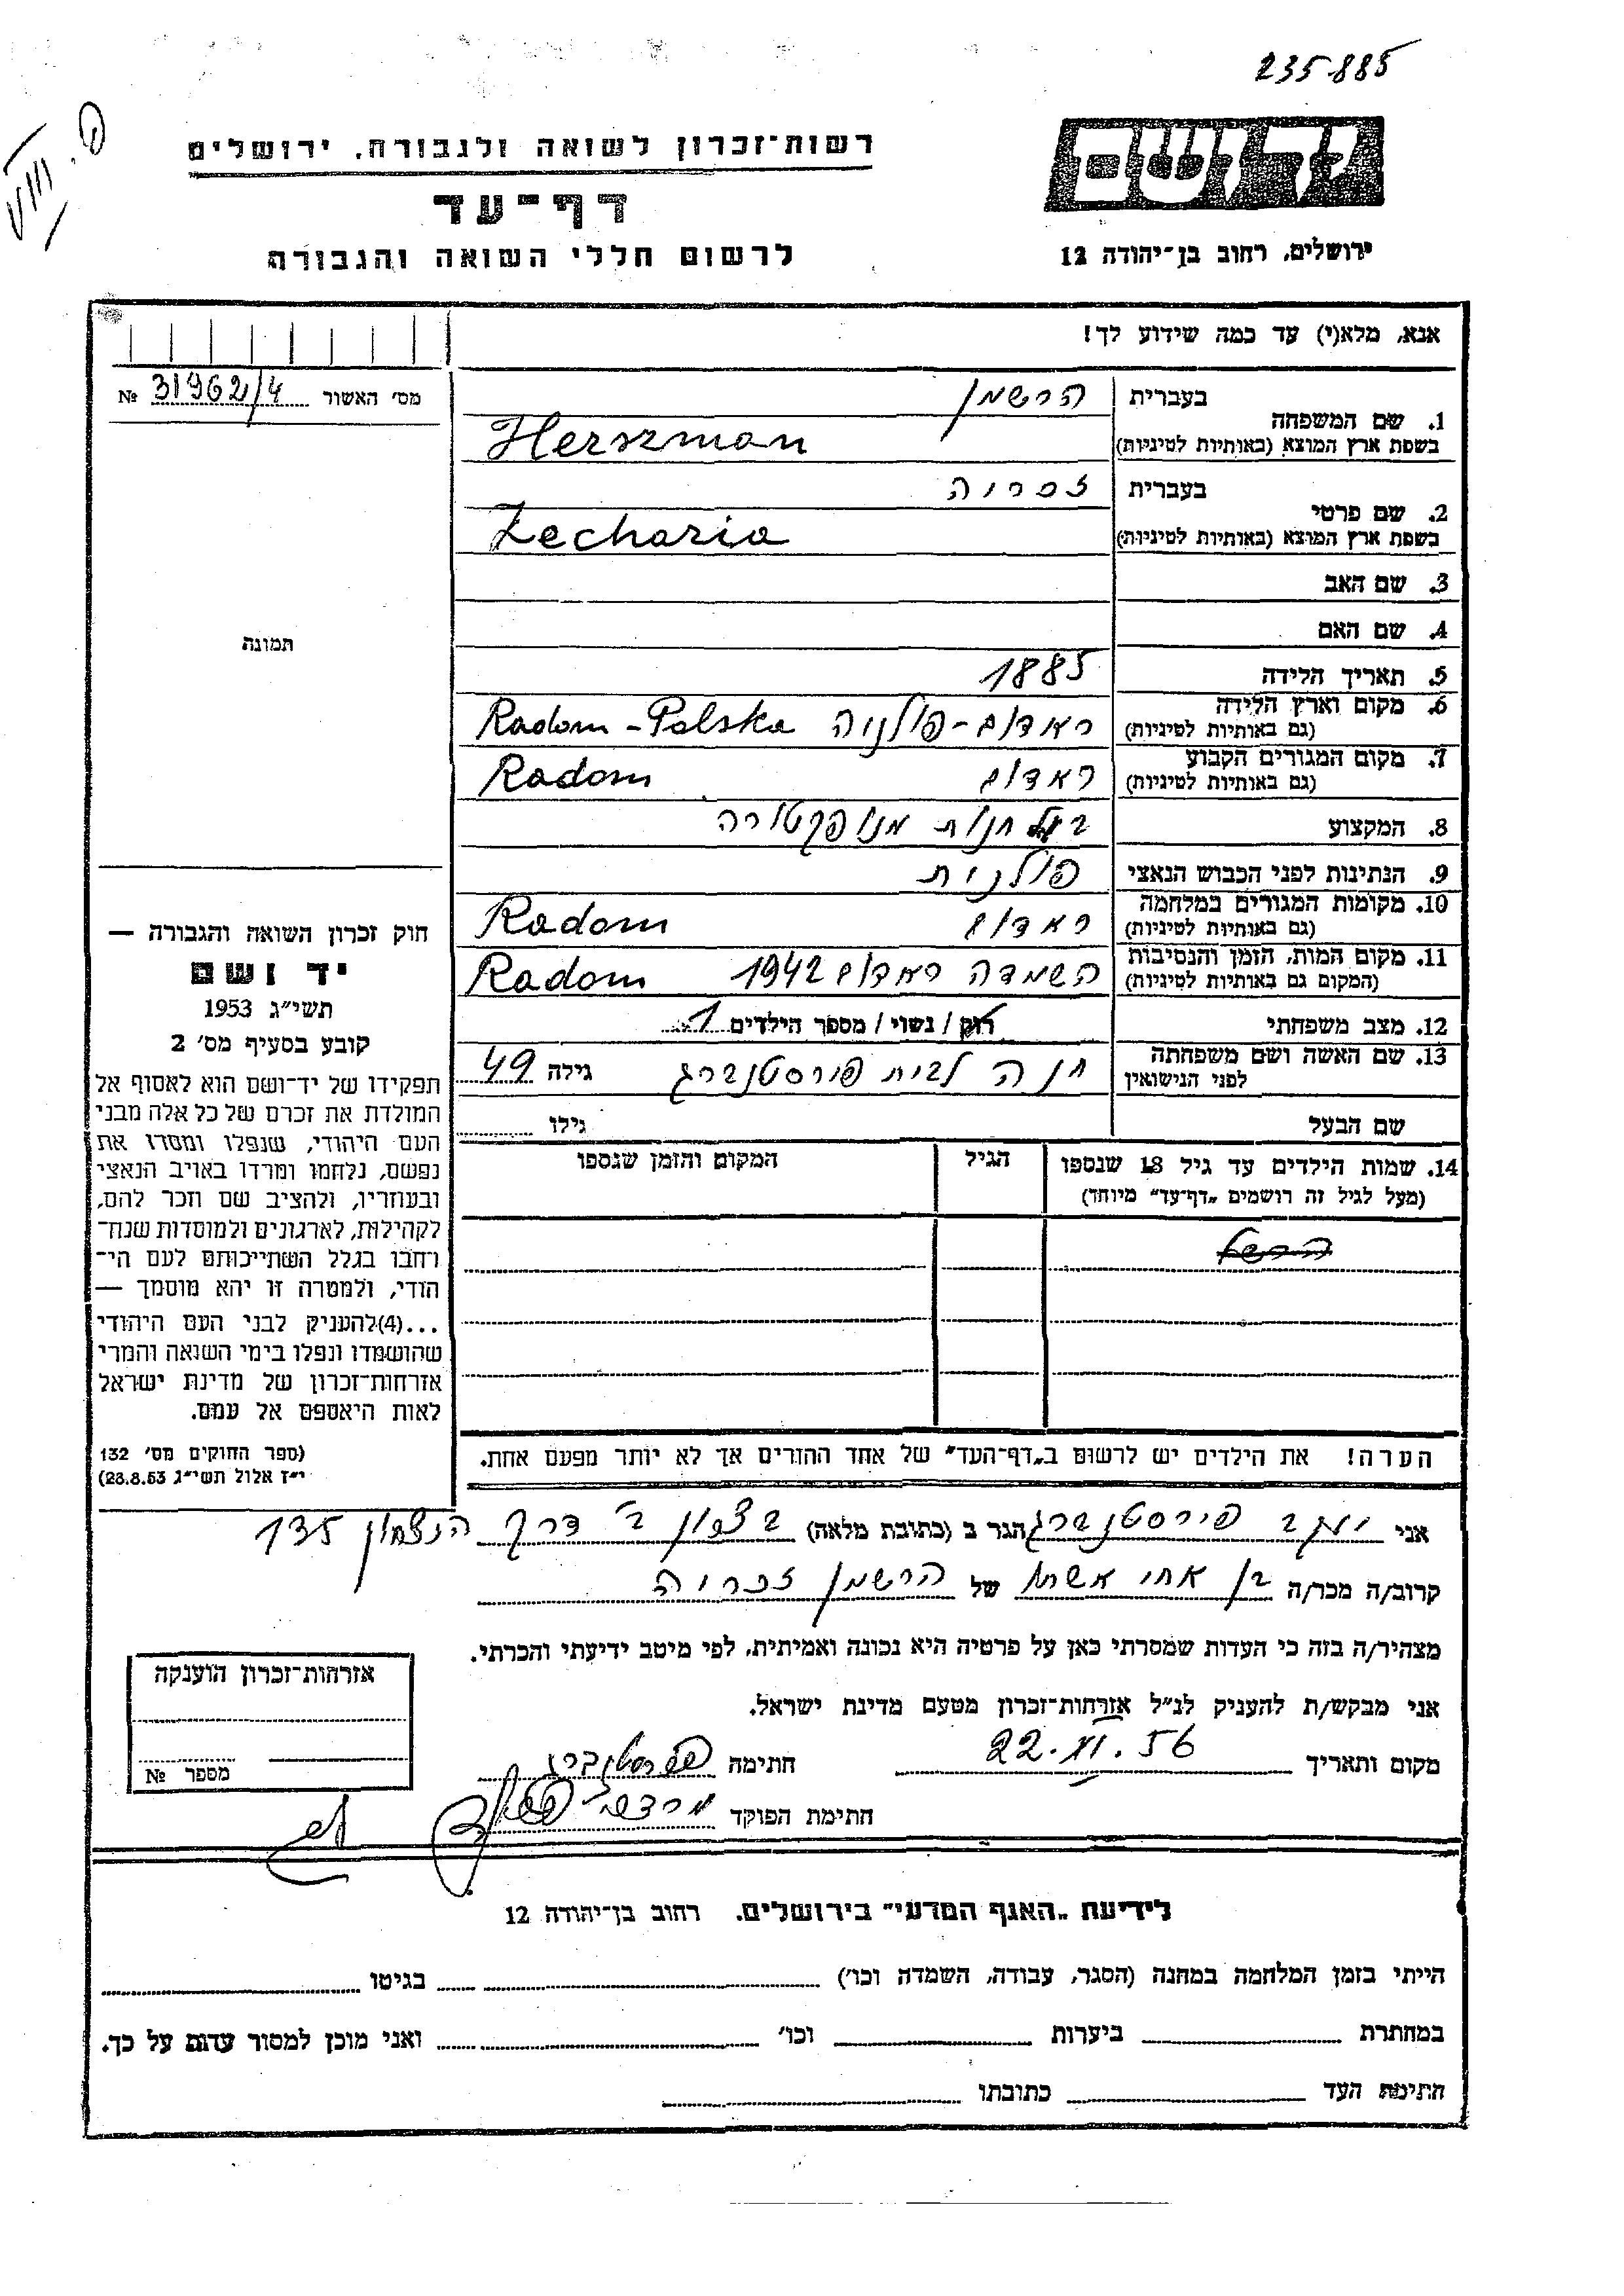 235885
פ. VIII
יד ושם
רשות־זכרון לשואה ולגבורה, ירושלים
דף־עד
לרשום חללי השואה והגבורה
ירושלים, רחוב בן־יהודה 12
אנא, מלא(י) עד כמה שידוע לך!
מס׳ האשור 31962/4 №
תמונה
חוק זכרון השואה והגבורה —
יד ושם
תשי״ג 1953
קובע בסעיף מס׳ 2
תפקידו של יד־ושם הוא לאסוף אל
המולדת את זכרם של כל אלה מבני
העם היהודי, שנפלו ומסרו את
נפשם, נלחמו ומרדו באויב הנאצי
ובעוזריו, ולהציב שם וזכר להם,
לקהילות, לארגונים ולמוסדות שנח־
רחבו בגלל השתייכותם לעם הי־
הודי, ולמטרה זו יהא מוסמך —
...(4)להעניק לבני העם היהודי
שהושמדו ונפלו בימי השואה והמרי
אזרחות־זכרון של מדינת ישראל
לאות היאספם אל עמם.
(ספר החוקים מס׳ 132
י״ז אלול תשי״ג 28.8.53)
1. שם המשפחה בעברית הרשמן
בשפת ארץ המוצא (באותיות לטיניות) Herszman
2. שם פרטי בעברית זכריה
בשפת ארץ המוצא (באותיות לטיניות) Zecharia
3. שם האב
4. שם האם
5. תאריך הלידה 1885
6. מקום וארץ הלידה (גם באותיות לטיניות) ראדום-פולניה Radom-Polska
7. מקום המגורים הקבוע (גם באותיות לטיניות) ראדום Radom
8. המקצוע בעל חנות מנופקטורה
9. הנתינות לפני הכבוש הנאצי פולנית
10. מקומות המגורים במלחמה (גם באותיות לטיניות) ראדום Radom
11. מקום המות, הזמן והנסיבות (המקום גם באותיות לטיניות) השמדה ראדום 1942 Radom
12. מצב משפחתי רוק / נשוי / מספר הילדים 1
13. שם האשה ושם משפחתה לפני הנישואין חנה לבית פורסטנברג גילה 49
שם הבעל גילו
14. שמות הילדים עד גיל 18 שנספו הגיל המקום והזמן שנספו
(מעל לגיל זה רושמים „דף־עד״ מיוחד)
הערה! את הילדים יש לרשום ב„דף־העד״ של אחד ההורים אך לא יותר מפעם אחת.
אני יעקב פירסטנברג הגר ב (כתובת מלאה) בצפון ב׳ דרך הנצחון 135
קרוב/ה מכר/ה בן אחי אשתו של הרשמן זכריה
מצהיר/ה בזה כי העדות שמסרתי כאן על פרטיה היא נכונה ואמיתית, לפי מיטב ידיעתי והכרתי.
אני מבקש/ת להעניק לנ״ל אזרחות־זכרון מטעם מדינת ישראל.
מקום ותאריך 22.VI.56 חתימה פירסטנברג
חתימת הפוקד מרדכי
אזרחות־זכרון הוענקה
מספר №
לידיעת „האגף המדעי״ בירושלים, רחוב בן־יהודה 12
הייתי בזמן המלחמה במחנה (הסגר, עבודה, השמדה וכו׳) בגיטו
במחתרת ביערות וכו׳ ואני מוכן למסור עדות על כך.
חתימת העד כתובתו